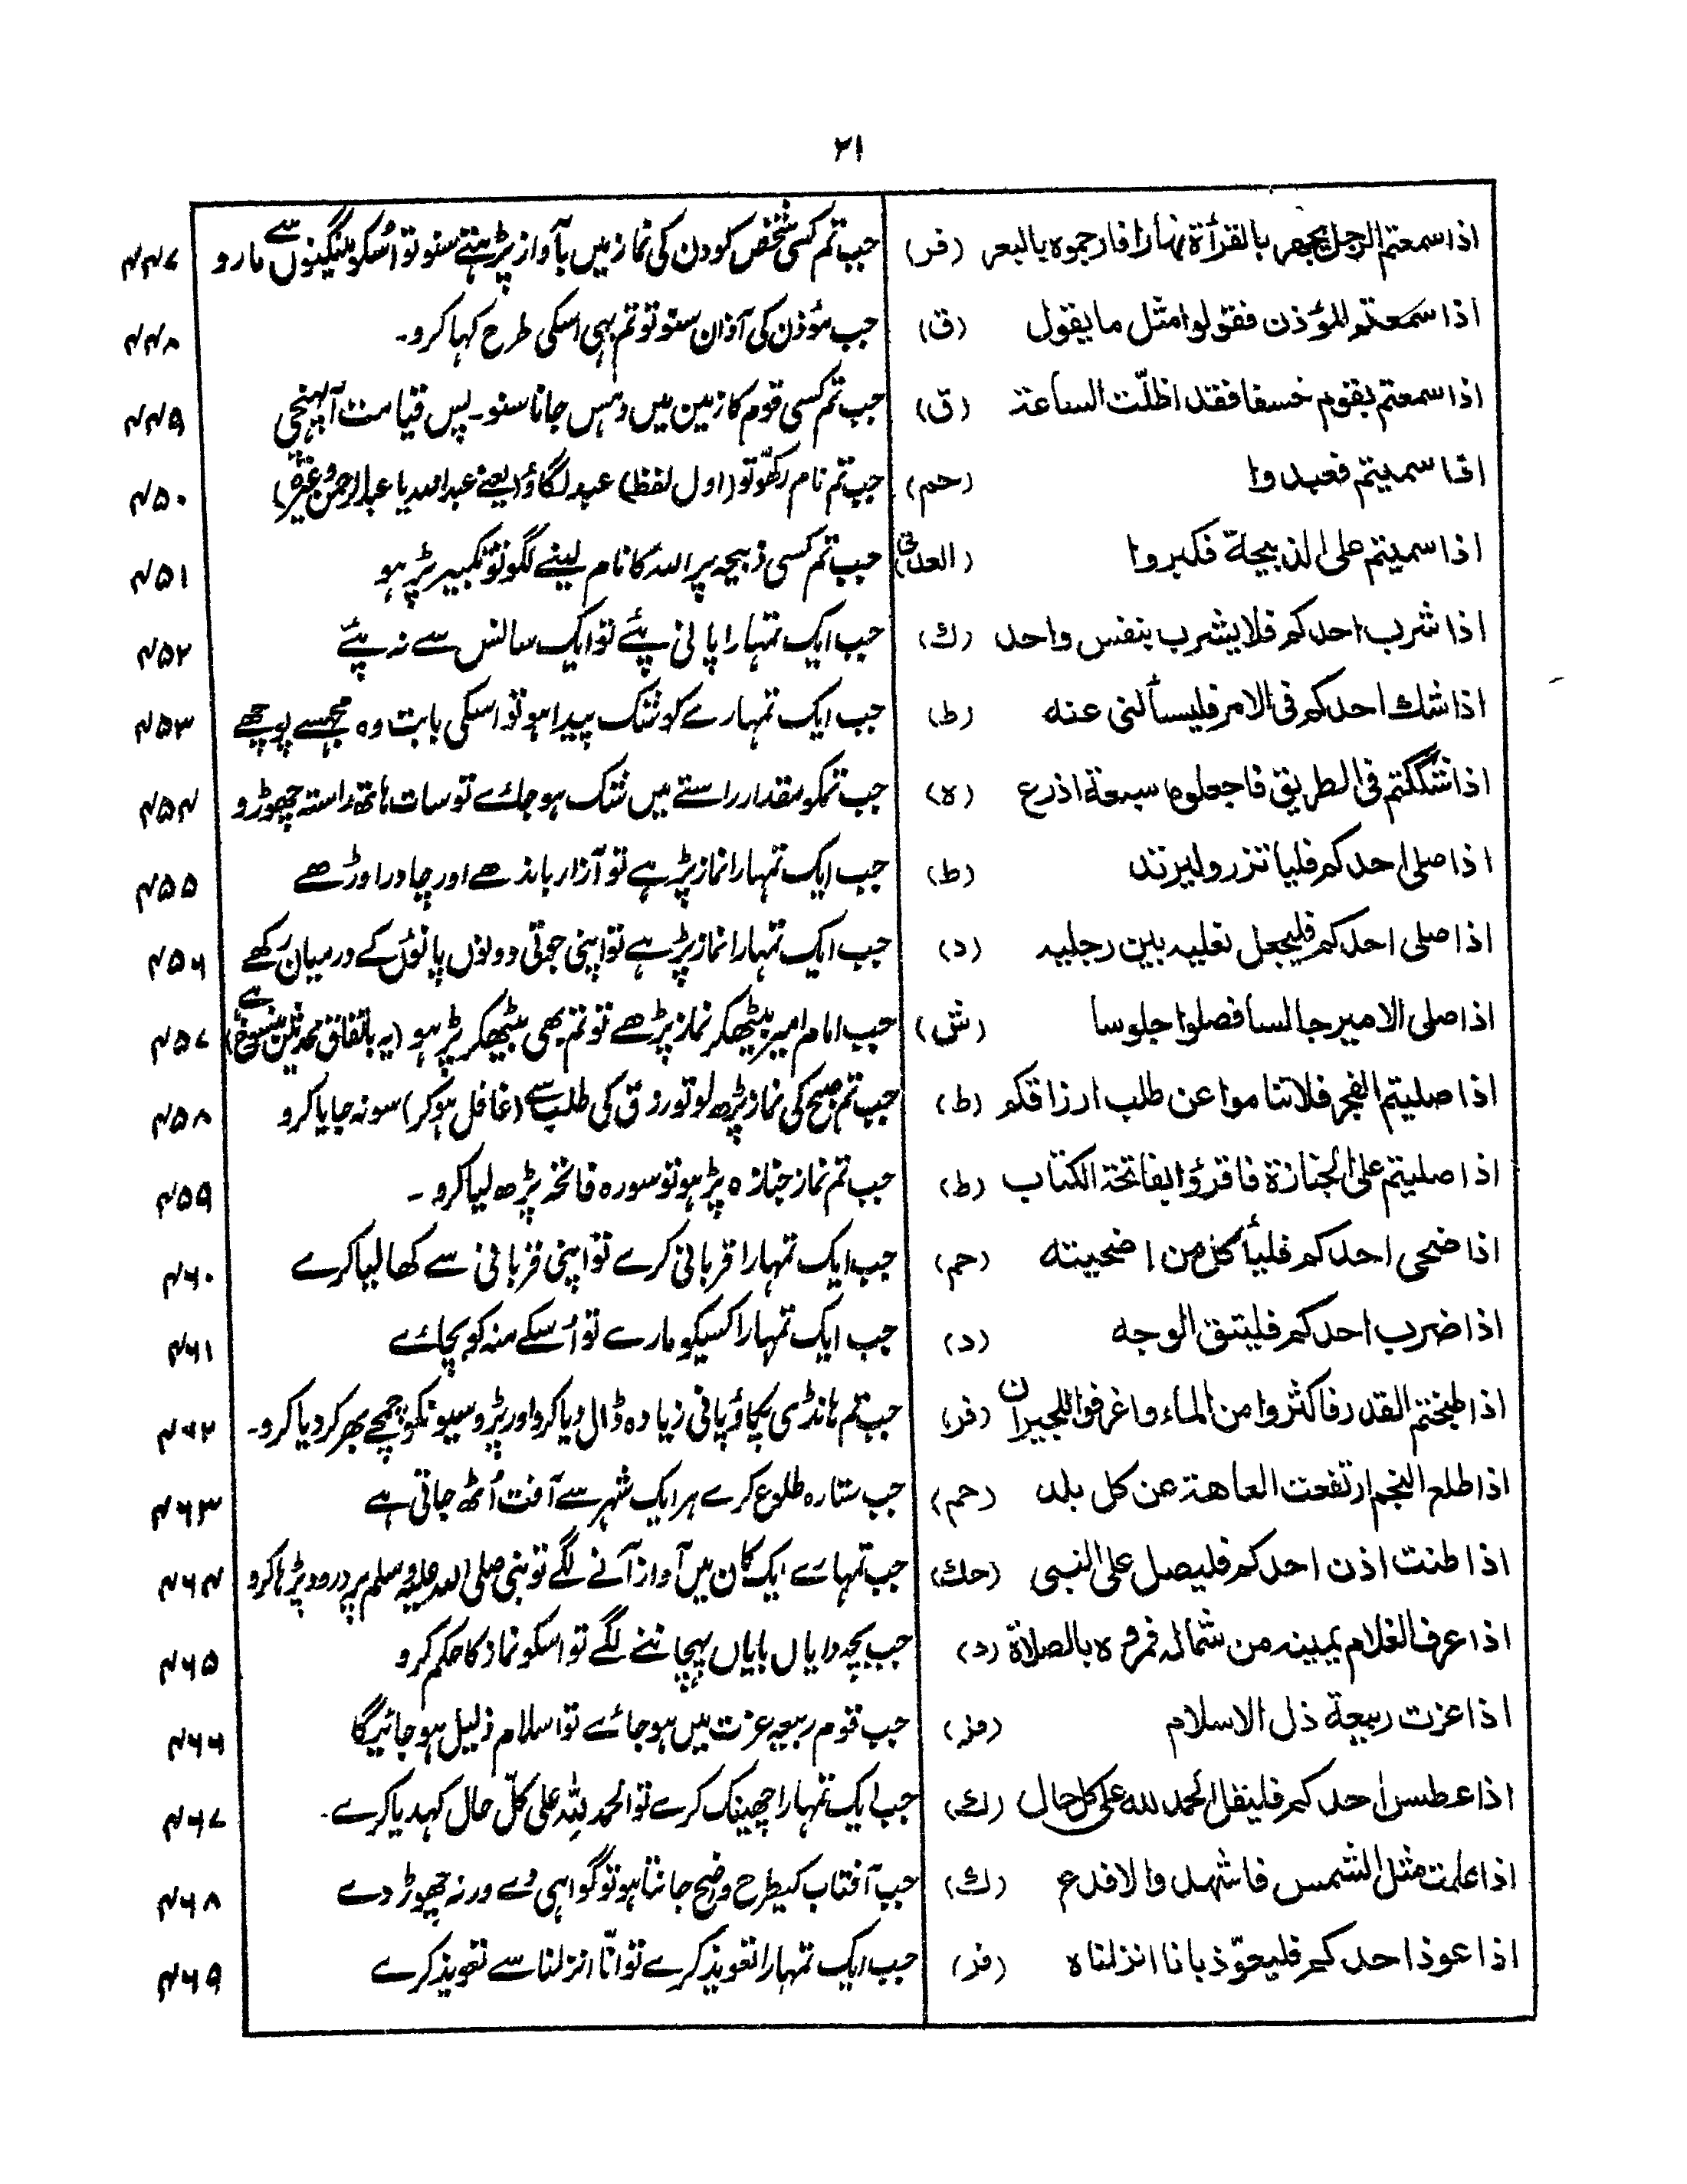 ٢١
اذا سمعتم الرجل يجهر بالقرأة نهارا فارجموه بالبعر (فر) جب تم کسی شخص کو دن کی نماز میں بآواز پڑہتے سنو تو اُسکو مینگینوں سے مارو ۴۴۷
اذا سمعتم المؤذن فقولوا مثل ما يقول (ق) جب مؤذن کی آذان سنو تو تم بہی اسکی طرح کہا کرو۔ ۴۴۸
اذا سمعتم بقوم خسفا فقد اظلّت الساعة (ق) جب تم کسی قوم کا زمین میں دہنس جانا سنو۔ پس قیامت آپہنچی ۴۴۹
اذا سميتم فعبدوا (حم) جب تم نام رکھو تو (اول لفظ) عبد لگاؤ (یعنے عبداللہ یا عبدالرحمن وغیرہ) ۴۵۰
اذا سميتم على الذبيحة فكبروا (العدنی) جب تم کسی ذبیحہ پر اللہ کا نام لینے لگو تو تکبیر پڑہو ۴۵۱
اذا شرب احدكم فلا يشرب بنفس واحد (ك) جب ایک تمہارا پانی پئے تو ایک سانس سے نہ پئے ۴۵۲
اذا شك احدكم فى الامر فليسألنى عنه (ط) جب ایک تمہارے کو شک پیدا ہو تو اسکی بابت وہ مجہسے پوچھے ۴۵۳
اذا شككتم فى الطريق فاجعلوها سبعة اذرع (ہ) جب تمکو مقدار راستے میں شک ہو جائے تو سات ہاتھ راستہ چھوڑو ۴۵۴
اذا صلى احدكم فلياتزر وليرتد (ط) جب ایک تمہارا نماز پڑہے تو آزار باندھے اور چادر اوڑھے ۴۵۵
اذا صلى احدكم فليجعل نعليه بين رجليه (د) جب ایک تمہارا نماز پڑہے تو اپنی جوتی دونوں پانؤں کے درمیان رکھے ۴۵۶
اذا صلى الامير جالسا فصلوا جلوسا (ش) جب امام امیر بیٹھکر نماز پڑھے تو تم بھی بیٹھکر پڑہو (یہ باتفاق محدثین منسوخ ہے) ۴۵۷
اذا صليتم الفجر فلا تناموا عن طلب ارزاقكم (ط) جب تم صبح کی نماز پڑھ لو تو روزی کی طلب سے (غافل ہوکر) سو نہ جایا کرو ۴۵۸
اذا صليتم على الجنازة فاقرؤا بفاتحة الكتاب (ط) جب تم نماز جنازہ پڑہو تو سورہ فاتحہ پڑھ لیا کرو۔ ۴۵۹
اذا ضحى احدكم فليأكل من اضحيته (حم) جب ایک تمہارا قربانی کرے تو اپنی قربانی سے کھا لیا کرے ۴۶۰
اذا ضرب احدكم فليتق الوجه (د) جب ایک تمہارا کسیکو مارے تو اُسکے منہ کو بچائے ۴۶۱
اذا طبختم القدر فاكثروا من الماء واغرفوا للجيران (فر) جب تم ہانڈی پکاؤ پانی زیادہ ڈال دیا کرو اور پڑوسیونکو چمچے بھر کر دیا کرو۔ ۴۶۲
اذا طلع النجم ارتفعت العاهة عن كل بلد (حم) جب ستارہ طلوع کرے ہر ایک شہر سے آفت اُٹھ جاتی ہے ۴۶۳
اذا طنت اذن احدكم فليصل على النبى (حك) جب تمہارے ایک کان میں آواز آنے لگے تو نبی صلی اللہ علیہ وسلم پر درود پڑہا کرو ۴۶۴
اذا عرف الغلام يمينه من شماله فمروه بالصلاة (د) جب بچہ دایاں بایاں پہچاننے لگے تو اسکو نماز کا حکم کرو ۴۶۵
اذا عزت ربيعة ذل الاسلام (فر) جب قوم ربیعہ عزت میں ہو جائے تو اسلام ذلیل ہو جائیگا ۴۶۶
اذا عطس احدكم فليقل الحمد لله على كل حال (ك) جب ایک تمہارا چھینک کرے تو الحمد للہ علی کلّ حال کہدیا کرے۔ ۴۶۷
اذا علمت مثل الشمس فاشهد والا فدع (ك) جب آفتاب کیطرح واضح جانتا ہو تو گواہی دے ورنہ چھوڑ دے ۴۶۸
اذا عوذ احدكم فليعوّذ بانا انزلناه (فر) جب ایک تمہارا تعویذ کرے تو انّا انزلنا سے تعویذ کرے ۴۶۹